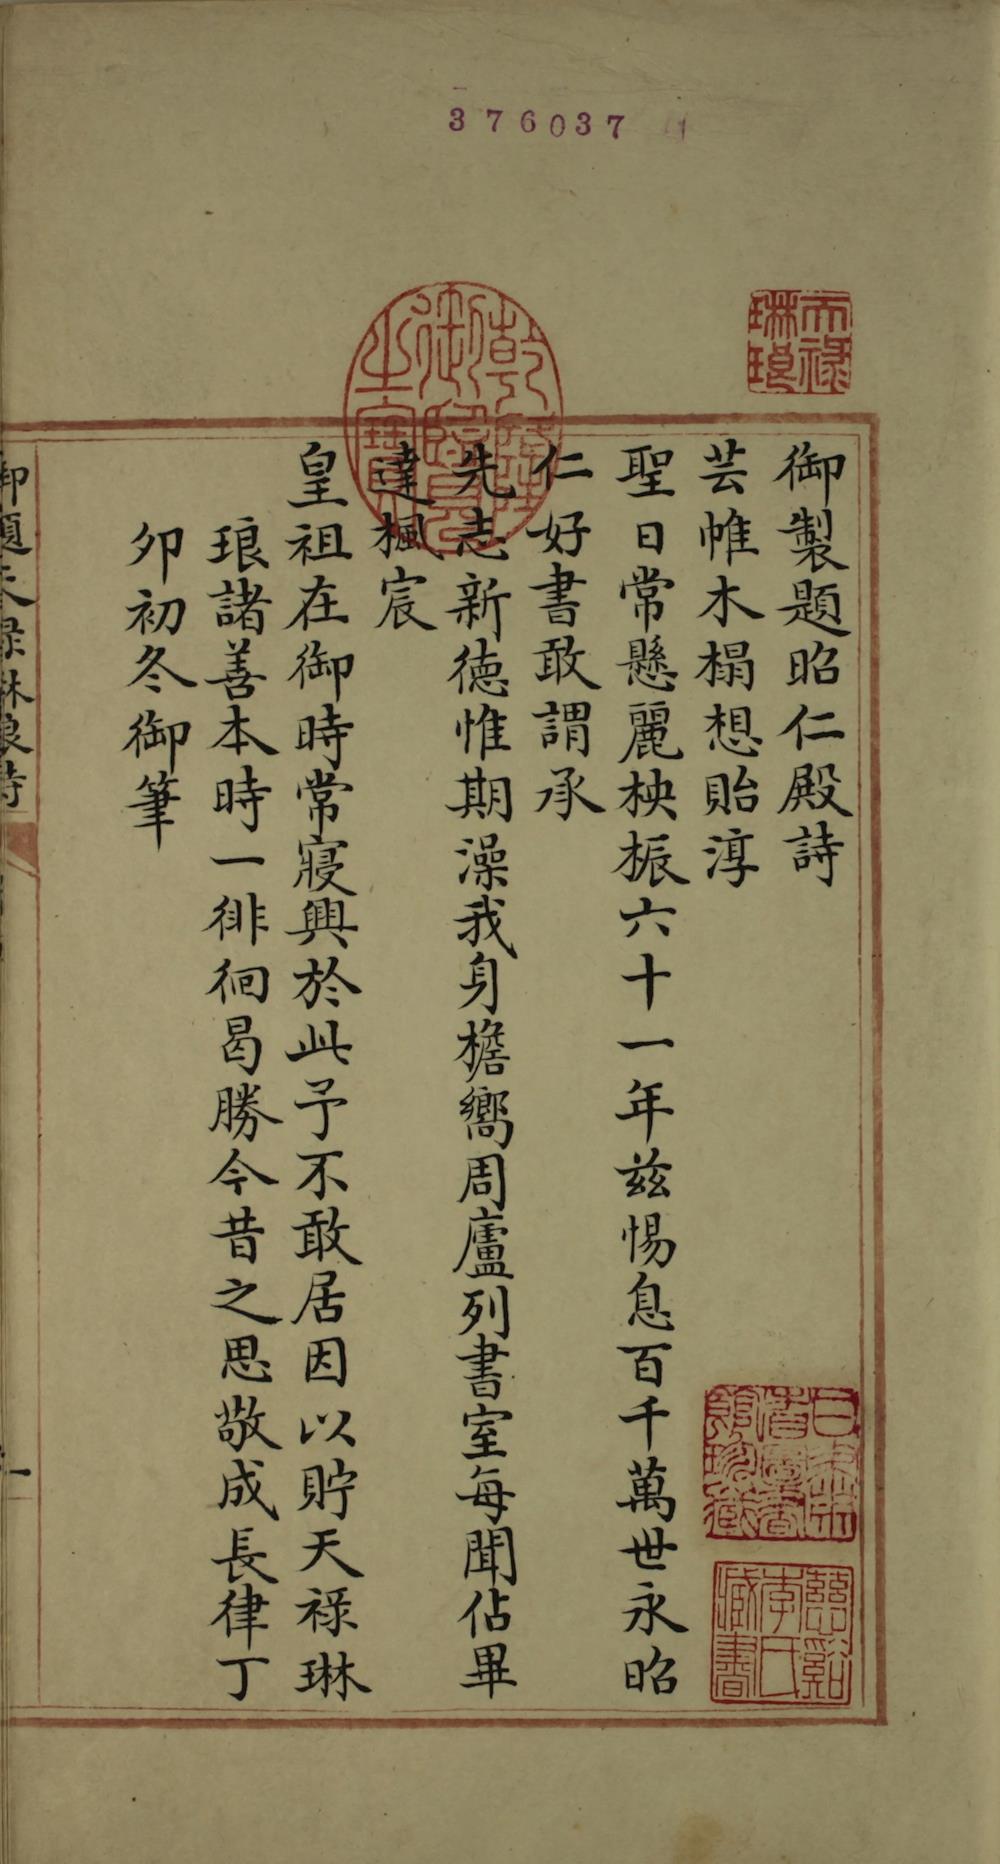 376037
天祿琳琅
乾隆御覽之寶
御製題昭仁殿詩
芸帷木榻想貽淳
聖日常懸麗柍桭六十一年茲惕息百千萬世永昭
仁好書敢謂承
先志新德惟期澡我身檐嚮周廬列書室每聞佔畢
達楓宸
皇祖在御時常寢興於此予不敢居因以貯天祿琳
琅諸善本時一徘徊曷勝今昔之思敬成長律丁
卯初冬御筆
慈谿李氏藏書
御題天祿琳琅詩
一